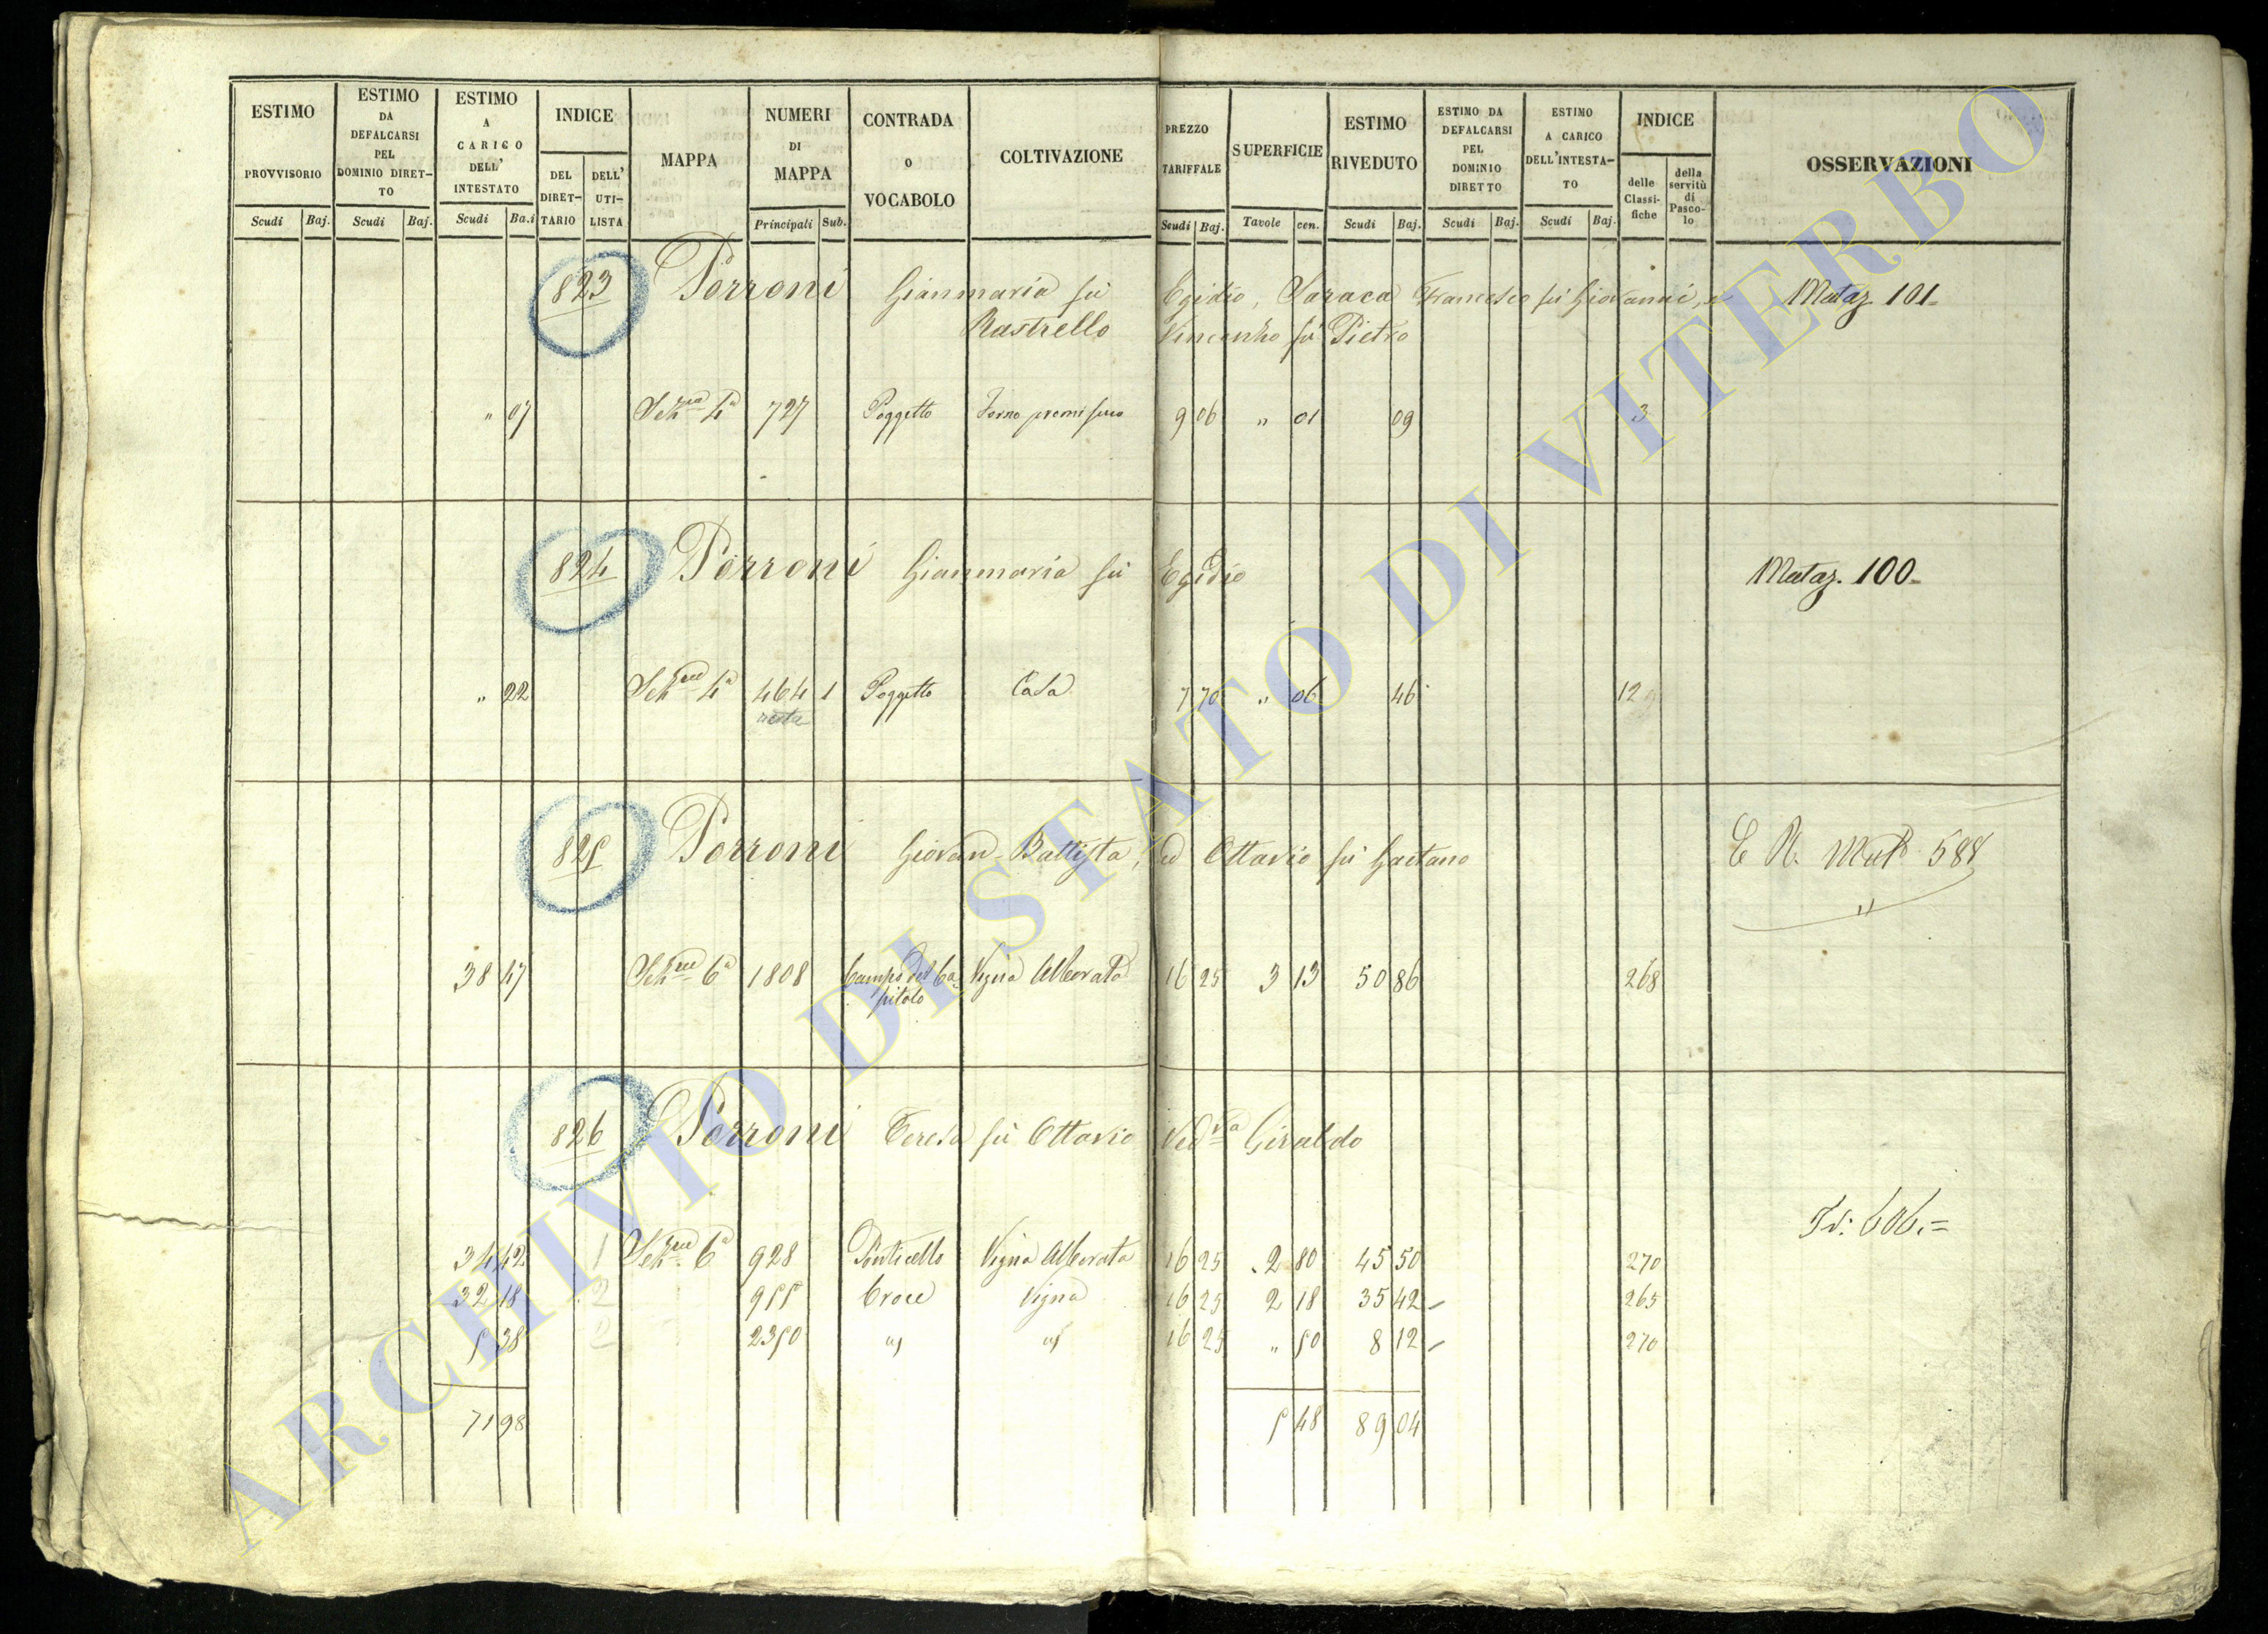 ESTIMO PROVVISORIO
Scudi Baj.
ESTIMO DA DEFALCARSI PEL DOMINIO DIRET-TO
Scudi Baj.
ESTIMO A CARICO DELL' INTESTATO
Scudi Ba.i
INDICE
DEL DIRET-TARIO
DELL' UTI-LISTA
MAPPA
NUMERI DI MAPPA
Principali Sub.
CONTRADA O VOCABOLO
COLTIVAZIONE
PREZZO TARIFFALE
Scudi Baj.
SUPERFICIE
Tavole cen.
ESTIMO RIVEDUTO
Scudi Baj.
ESTIMO DA DEFALCARSI PEL DOMINIO DIRETTO
Scudi Baj.
ESTIMO A CARICO DELL'INTESTA-TO
Scudi Baj.
INDICE
delle Classi-fiche
della servitù di Pasco-lo
OSSERVAZIONI
823 Porroni Gianmaria fù Egidio, Saraca Francesco fù Giovanni, e Mataz 101
Rastrello Vincenzo fù Pietro
" 07 Sez 4a 727 Poggetto Forno 9 06 " 01 09 3
824 Porroni Gianmaria fù Egidio Mataz. 100
" 22 Sez 4a 464 1 Poggetto Casa 7 70 " 06 46 12
resta
825 Porroni Giovan Battista, ed Ottavio fù Gaetano
38 47 Sez 6a 1808 Campo del Ca- Vigna Alborata 16 25 3 13 50 86 268
pitolo
826 Porroni Teresa fù Ottavio Ved.va Giraldo
606.=
34 42 1 Sez 6a 928 Ponticello Vigna Alborata 16 25 2 80 45 50 270
32 18 2 955 Croce Vigna 16 25 2 18 35 42 265
5 38 2 2350 " " 16 25 " 50 8 12 270
71 98 5 48 89 04
ARCHIVIO DI STATO DI VITERBO